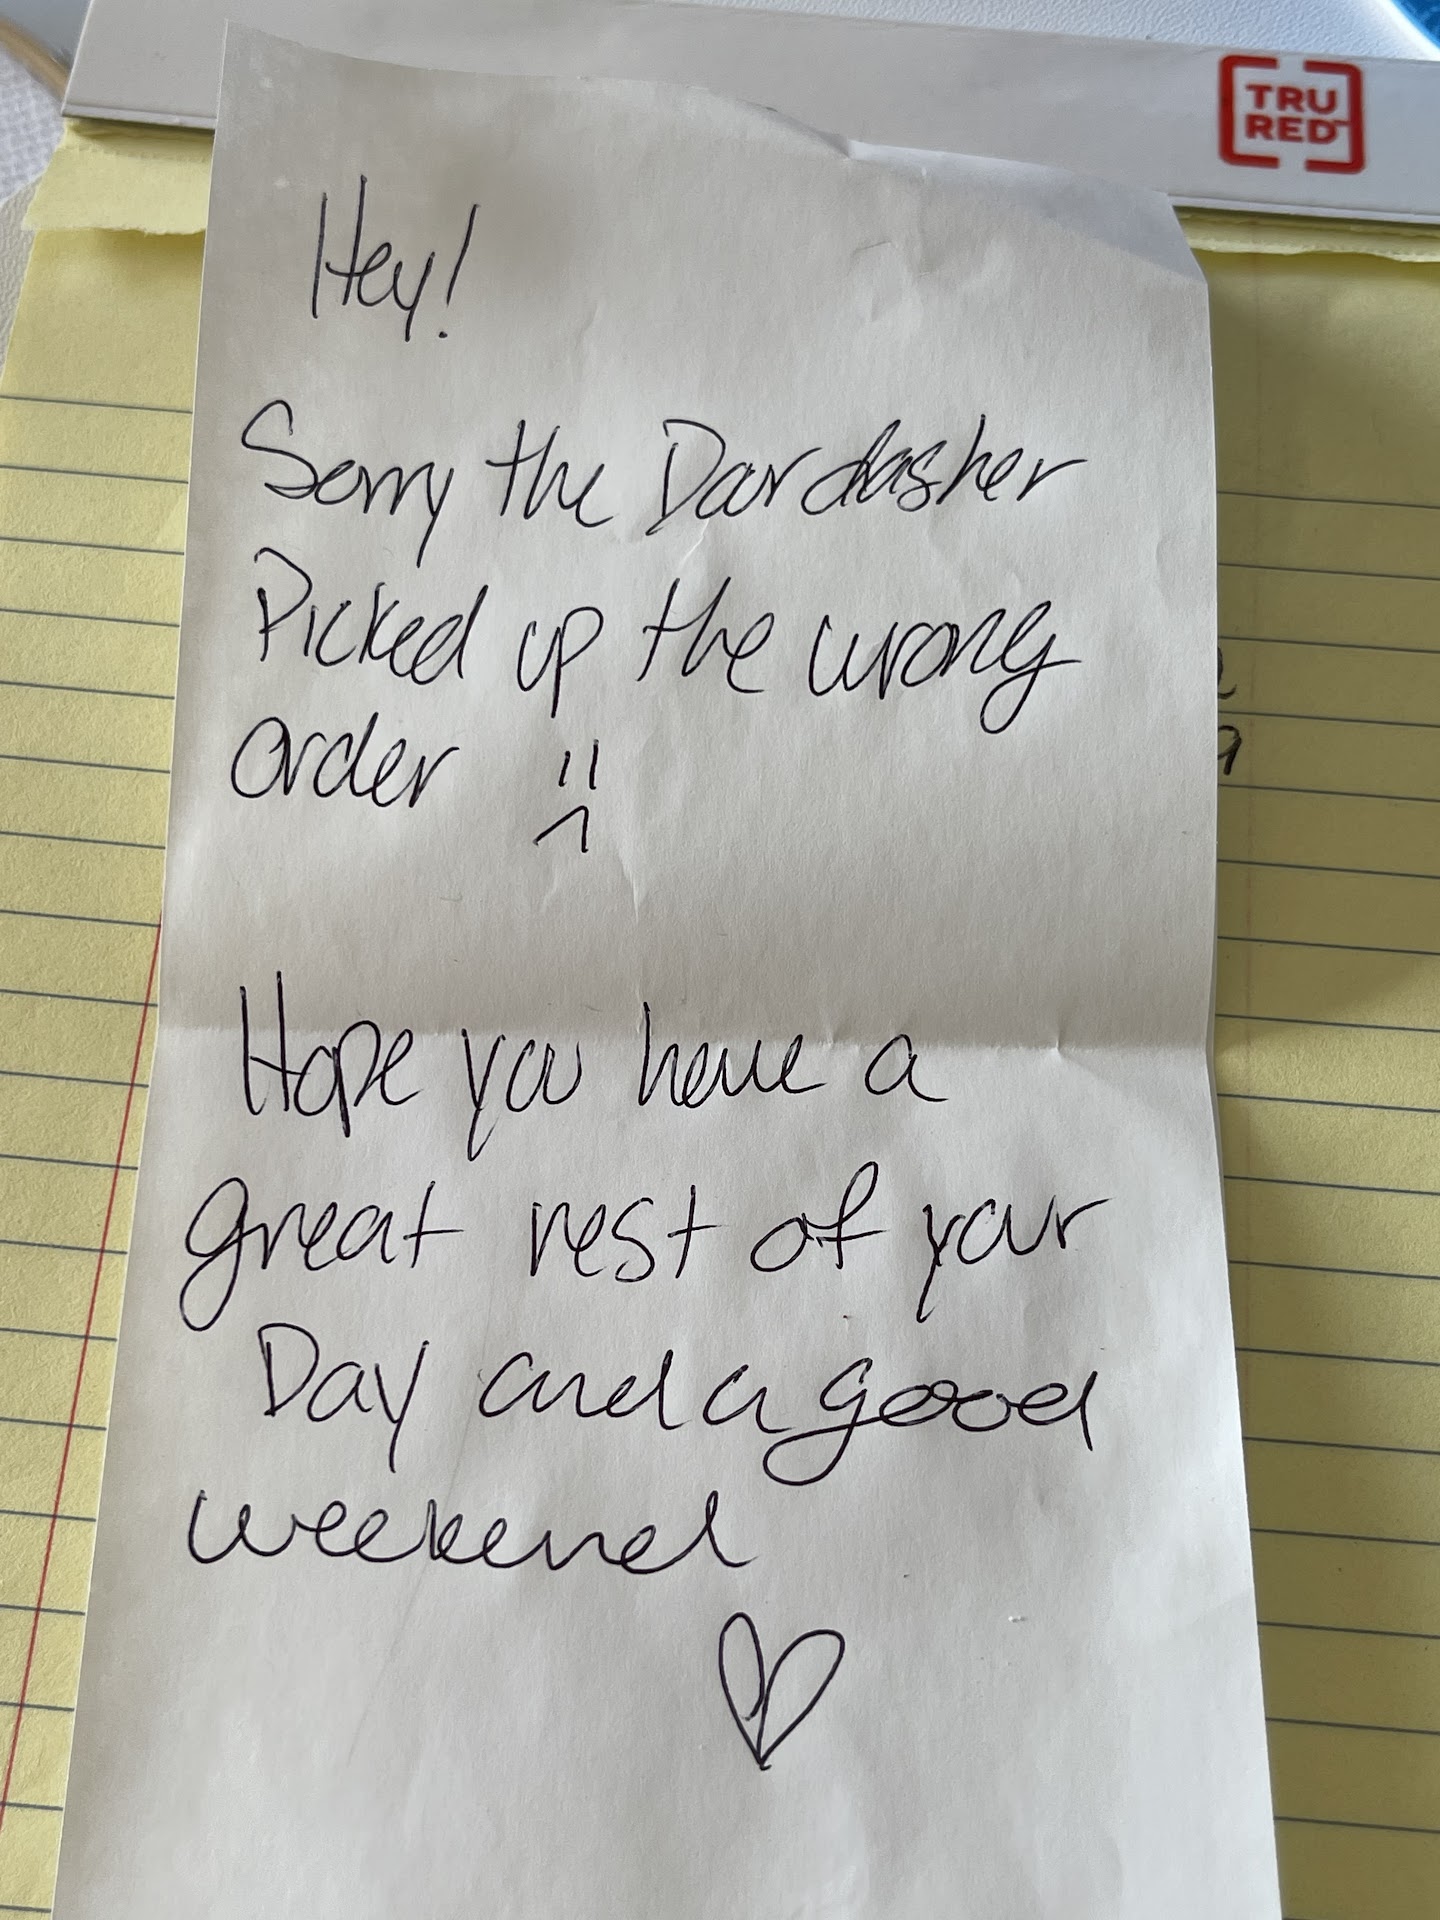 TRU
RED
Hey!
Sorry the Doordasher
Picked up the wrong
order
Hope you have a
great rest of your
Day and a good
weekend